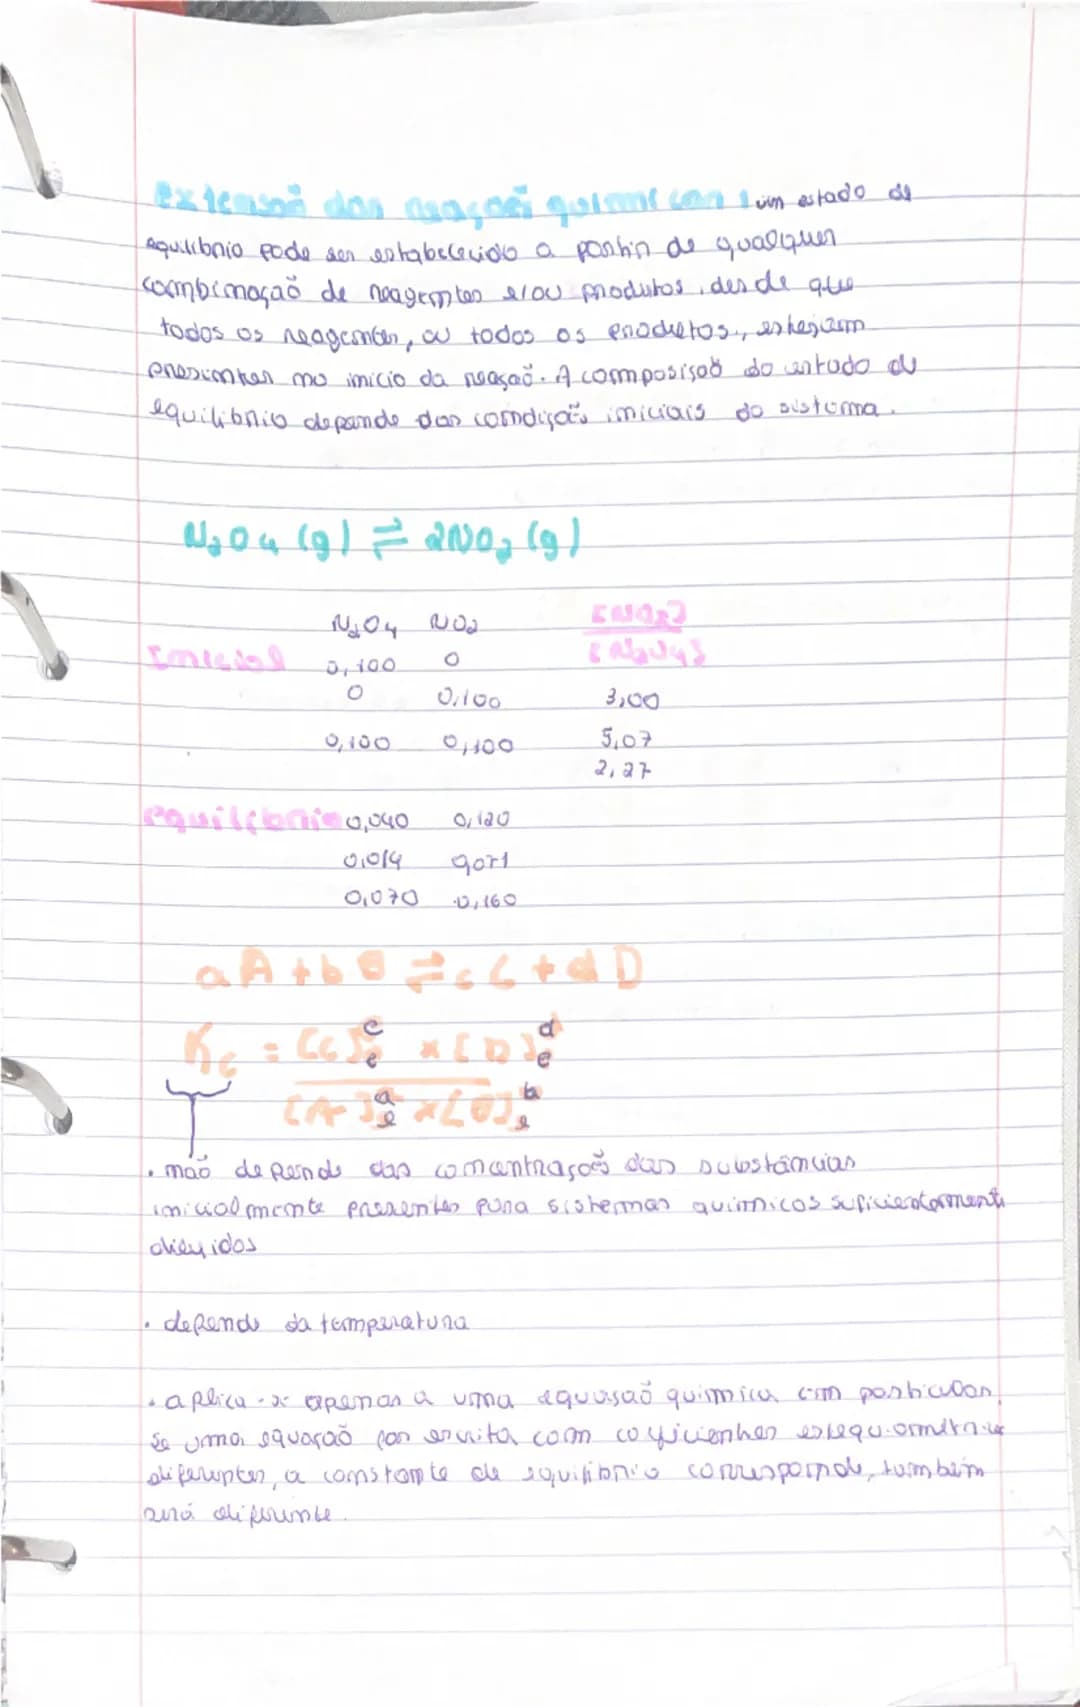 extensoẽ das reaçoẽs quimicas: um estado de
equilibrio pode ser estabelecido a partir de qualquer
combinaçaõ de reagentes e/ou produtos, desde que
todos os reagentes, ou todos os produtos, estejam
presentes no inicio da reaçaõ. A composiçaõ do estado de
equilibrio depende das condiçoẽs iniciais do sistema.
N₂O₄ (g) ⇌ 2NO₂ (g)
N₂O₄ NO₂ [NO₂]/[N₂O₄]
Inicial 0,100 0
0 0,100 3,00
0,100 0,100 5,07
2,27
equilíbrio 0,040 0,120
0,014 0,071
0,070 0,160
aA + bB ⇌ cC + dD
Kc = [C]ᶜₑ × [D]ᵈₑ
[A]ᵃₑ × [B]ᵇₑ
• naõ depende das concentraçoẽs das substâncias
inicialmente presentes para sistemas quimicos suficientemente
diluidos
• depende da temperatura
• aplica-se apenas a uma equaçaõ quimica em particular.
Se uma equaçaõ for escrita com coeficientes estequiometricos
diferentes, a constante de equilibrio correspondente, tambem
será diferente.